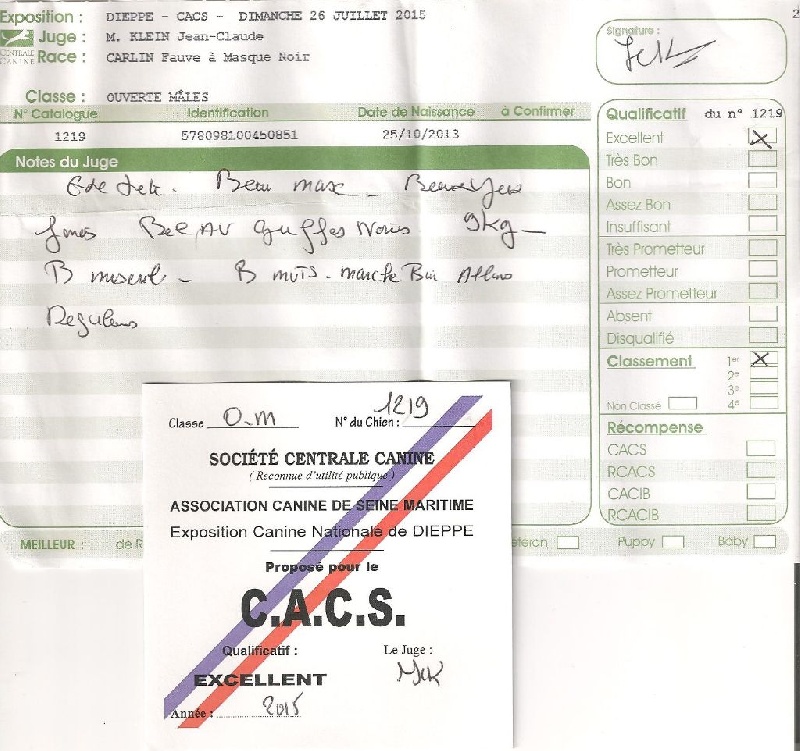 Exposition : DIEPPE - CACS - DIMANCHE 26 JUILLET 2015
2
Juge : M. KLEIN Jean-Claude
CENTRALE CANINE
Race : CARLIN Fauve à Masque Noir
Signature :
Classe : OUVERTE MÂLES
N° Catalogue Identification Date de Naissance à Confirmer
1219 578098100450851 25/10/2013
Notes du Juge
Beau masx
Bel AV Griffes Noires 9kg
B muscl. B mvts. marche Bien
Qualificatif du n° 1219
Excellent X
Très Bon
Bon
Assez Bon
Insuffisant
Très Prometteur
Prometteur
Assez Prometteur
Absent
Disqualifié
Classement 1er X
2e
3e
Non Classé 4e
Récompense
CACS
RCACS
CACIB
RCACIB
MEILLEUR : de R
Puppy Baby
Classe O.M N° du Chien : 1219
SOCIÉTÉ CENTRALE CANINE
( Reconnue d'utilité publique )
ASSOCIATION CANINE DE SEINE MARITIME
Exposition Canine Nationale de DIEPPE
Proposé pour le
C.A.C.S.
Qualificatif : Le Juge :
EXCELLENT
Année : 2015